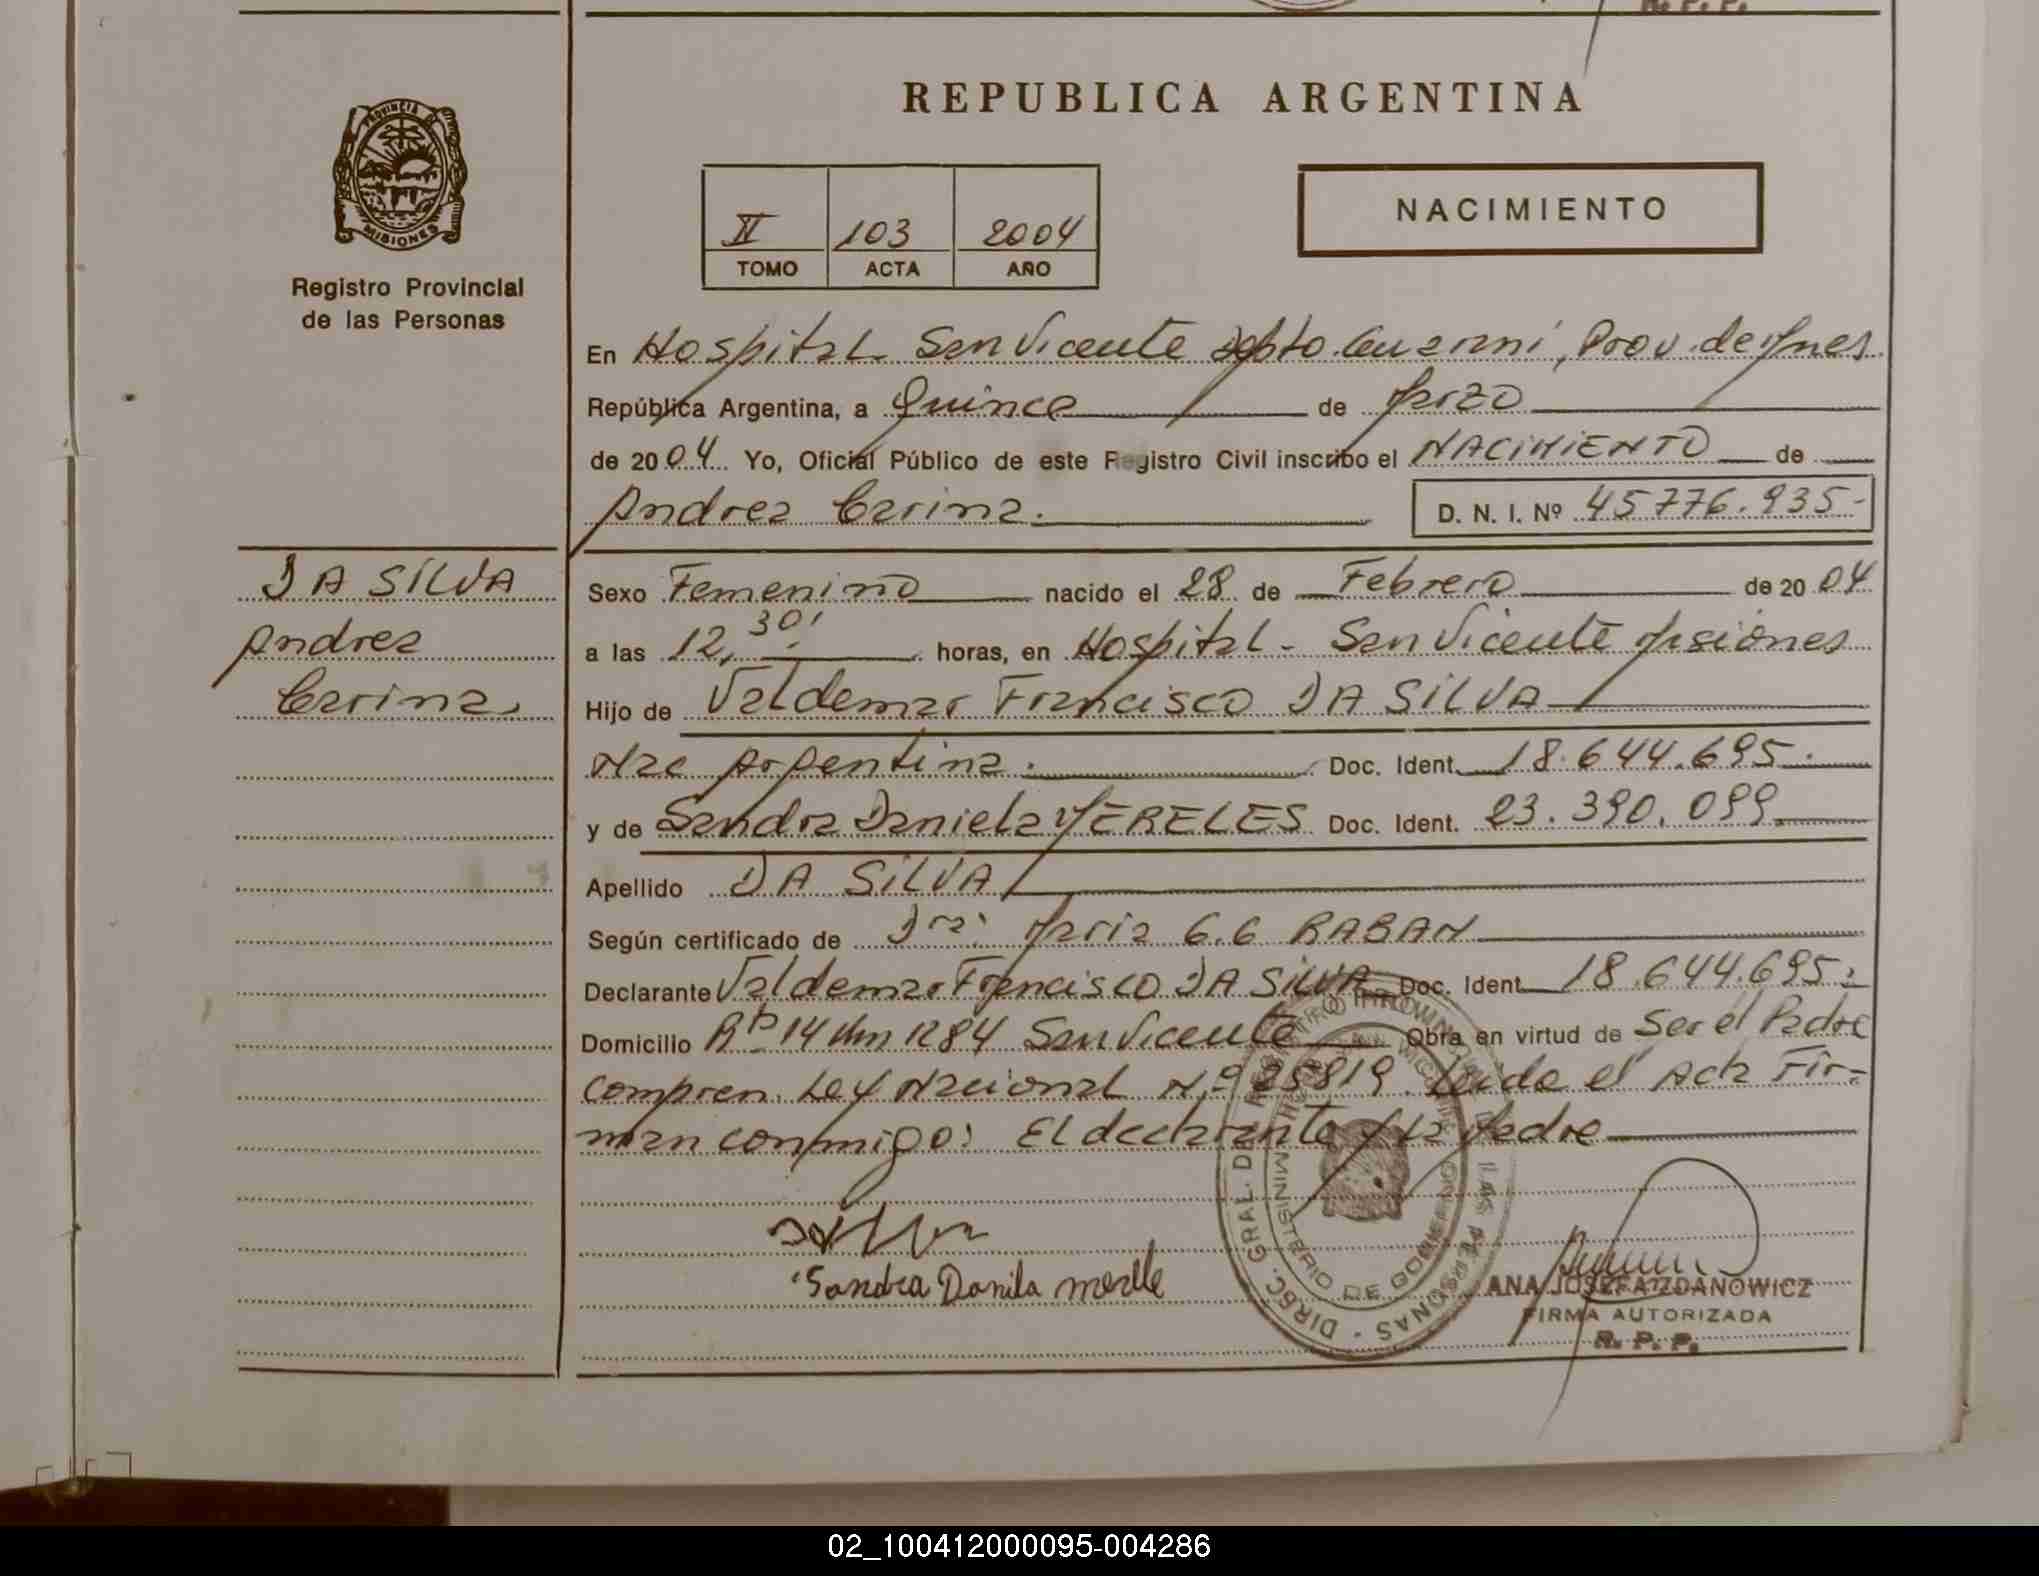 R. P. P.
REPUBLICA ARGENTINA
PROVINCIA DE
MISIONES
Registro Provincial
de las Personas
II 103 2004
TOMO ACTA AÑO
NACIMIENTO
En Hospital San Vicente Depto. Guaraní, Prov. de Mnes.
República Argentina, a Quince de Marzo
de 2004 Yo, Oficial Público de este Registro Civil inscribo el NACIMIENTO de
Andrea Carina.
D. N. I. Nº 45776.935-
DA SILVA
Andrea
Carina.
Sexo Femenino nacido el 28 de Febrero de 2004
a las 12,30' horas, en Hospital - San Vicente Misiones
Hijo de Valdemar Francisco DA SILVA
Nac Argentina. Doc. Ident. 18.644.695.
y de Sandra Daniela MERELES Doc. Ident. 23.390.099.
Apellido DA SILVA
Según certificado de Dra. Maria G.G RABAN
Declarante Valdemar Francisco DA SILVA Doc. Ident. 18.644.695.
Domicilio Rta 14 Km 1284 San Vicente Obra en virtud de Ser el Padre
Compren. Ley Nacional N.º 25819. Leida el Acta Fir-
man conmigo: El declarante y la Madre
DIREC. GRAL. DE REGISTRO PROVINCIAL DE LAS PERSONAS
MINISTERIO DE GOBIERNO
Sandra Danila merelle
ANA JOSEFA ZDANOWICZ
FIRMA AUTORIZADA
R. P. P.
02_100412000095-004286